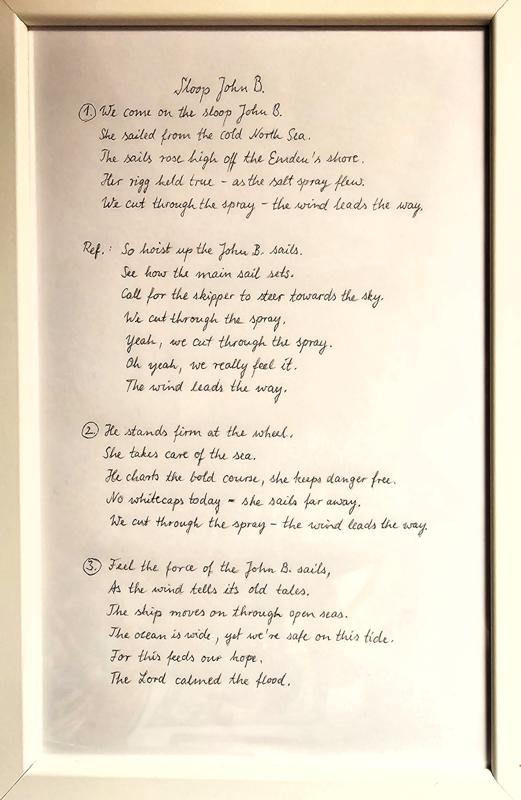 Sloop John B.
1. We come on the sloop John B.
She sailed from the cold North Sea.
The sails rose high off the Emden's shore.
Her rigg held true - as the salt spray flew.
We cut through the spray - the wind leads the way.
Ref.: So hoist up the John B. sails.
See how the main sail sets.
Call for the skipper to steer towards the sky.
We cut through the spray.
Yeah, we cut through the spray.
Oh yeah, we really feel it.
The wind leads the way.
2. He stands firm at the wheel.
She takes care of the sea.
He charts the bold course, she keeps danger free.
No whitecaps today - she sails far away.
We cut through the spray - the wind leads the way.
3. Feel the force of the John B. sails,
As the wind tells its old tales.
The ship moves on through open seas.
The ocean is wide, yet we're safe on this tide.
For this feeds our hope.
The Lord calmed the flood.